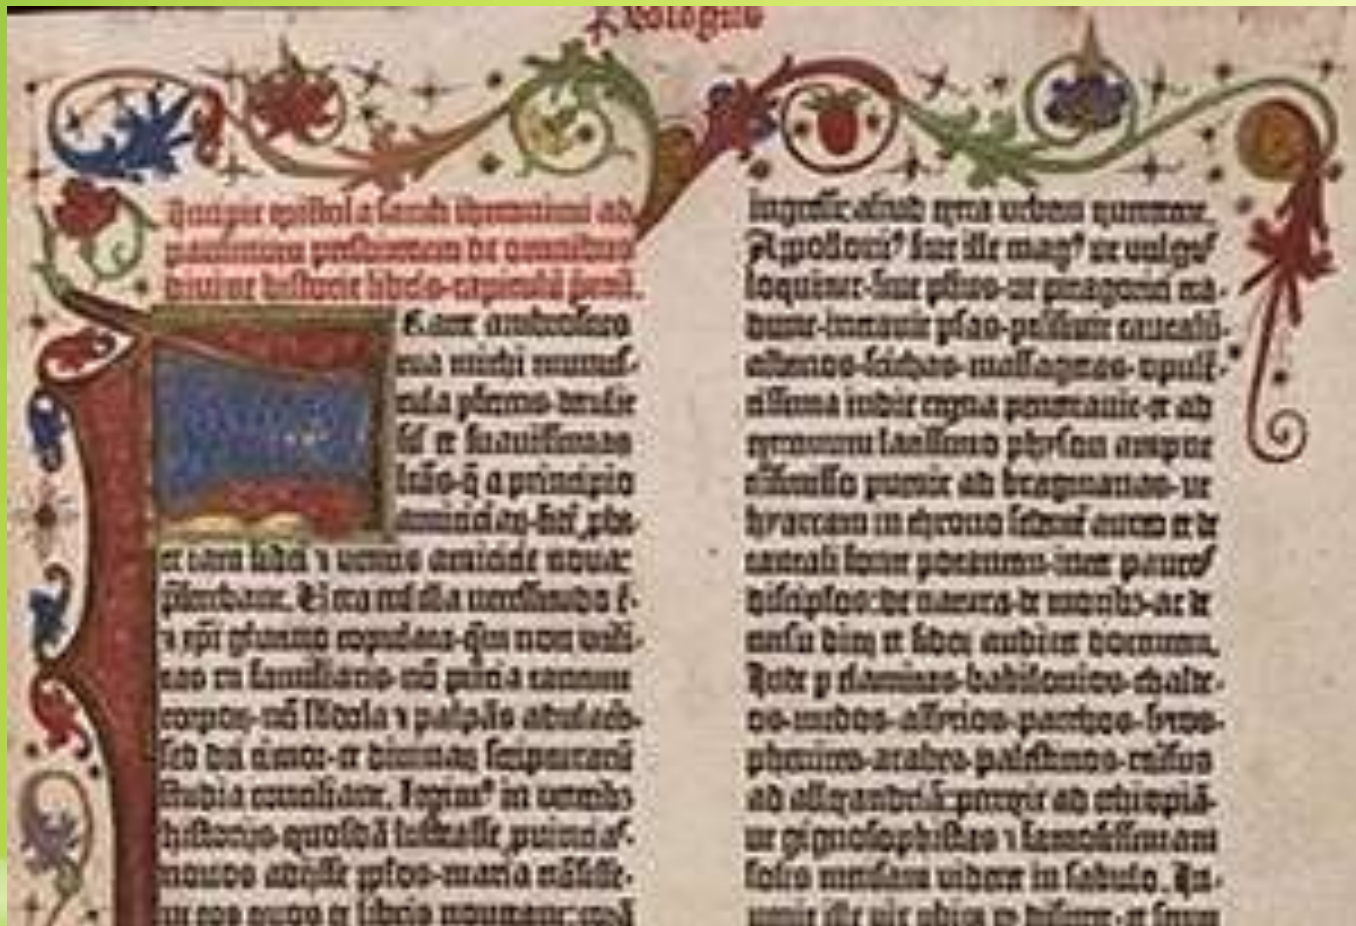 Prologus
Incipit epistola sancti iheronimi ad
paulinum presbiterum de omnibus
divine historie libris·capitulū pmū.
Frater ambrosius
tua michi munus-
cula pferens·detulit
sił et suavissimas
lrās·q̄ a principio
amiciciaꝝ·fidē pba-
te iam fidei ⁊ veteris amicicie nova:
pferebant. Vera eni illa necessitudo ē·
⁊ xpī glutino copulata·qm̄ non utili-
tas rei familiaris·nō pntia tantum
corpoꝝ·nō sbdola ⁊ palpās adulacō·
sed dei timor·et divinaꝝ scripturarū
studia conciliant. Legimꝰ in veteribꝫ
historijs·quosdā lustrasse pvincias·
novos adijsse pplos·maria trāsisse·
ut eos quos ex libris noverant: corā
ingressꝰ aliud extra urbem quererent.
Apolloniꝰ sive ille magꝰ ut vulgꝰ
loquitur·sive phūs·ut pitagorici tra-
dunt·intravit psas·ptransivit caucasū·
albanos·scithas·massagetas·opulē-
tissima indie regna penetravit·et ad
extremum latissimo physon amne
trāsmisso pvenit ad bragmanas·ut
hyarcam in throno sedentē aureo et de
tantali fonte potantem·inter paucos
discipłos·de natura·de moribꝫ·ac de
cursu dieꝝ et sideꝝ audiret docentem.
Inde p elamitas·babilonios·chalde-
os·medos·assirios·parthos·syros·
phenices·arabes·palestinos·reversus
ad allexandriā·perrexit ad ethiopiā·
ut gignosophistas ⁊ famosissimam
solis mensam videret in sabulo. In-